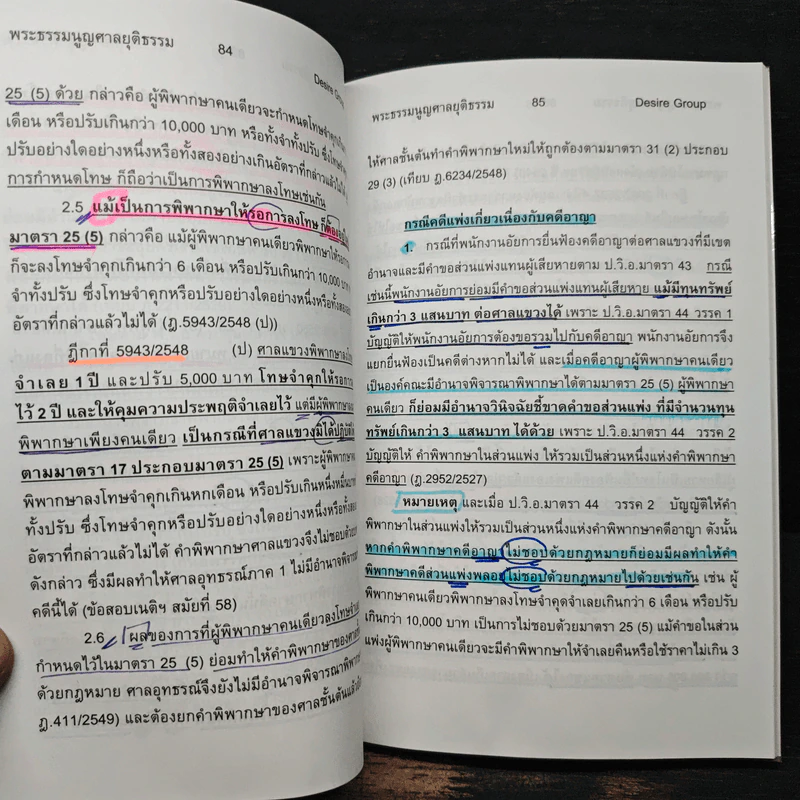 พระธรรมนูญศาลยุติธรรม 84
Desire Gro
25 (5) ด้วย กล่าวคือ ผู้พิพากษาคนเดียวจะกำหนดโทษจำคุกเกิน
เดือน หรือปรับเกินกว่า 10,000 บาท หรือทั้งจำทั้งปรับ ซึ่งโทษจำคุก
ปรับอย่างใดอย่างหนึ่งหรือทั้งสองอย่างเกินอัตราที่กล่าวแล้วไม่ได้
การกำหนดโทษ ก็ถือว่าเป็นการพิพากษาลงโทษเช่นกัน
2.5 แม้เป็นการพิพากษาให้รอการลงโทษ ก็ต้อง
มาตรา 25 (5) กล่าวคือ แม้ผู้พิพากษาคนเดียวพิพากษาให้รอการ
ก็จะลงโทษจำคุกเกินกว่า 6 เดือน หรือปรับเกินกว่า 10,000 บาท
จำทั้งปรับ ซึ่งโทษจำคุกหรือปรับอย่างใดอย่างหนึ่งหรือทั้งสอง
อัตราที่กล่าวแล้วไม่ได้ (ฎ.5943/2548 (ป))
ฎีกาที่ 5943/2548 (ป) ศาลแขวงพิพากษาลง
จำเลย 1 ปี และปรับ 5,000 บาท โทษจำคุกให้รอการ
ไว้ 2 ปี และให้คุมความประพฤติจำเลยไว้ แต่มีผู้พิพากษา
พิพากษาเพียงคนเดียว เป็นกรณีที่ศาลแขวงมิได้ปฏิบัติ
ตามมาตรา 17 ประกอบมาตรา 25 (5) เพราะผู้พิพาก
พิพากษาลงโทษจำคุกเกินหกเดือน หรือปรับเกินหนึ่งหมื่น
ทั้งปรับ ซึ่งโทษจำคุกหรือปรับอย่างใดอย่างหนึ่งหรือทั้งสอง
อัตราที่กล่าวแล้วไม่ได้ คำพิพากษาศาลแขวงจึงไม่ชอบด้วย
ดังกล่าว ซึ่งมีผลทำให้ศาลอุทธรณ์ภาค 1 ไม่มีอำนาจพิจาร
คดีนี้ได้ (ข้อสอบเนติฯ สมัยที่ 58)
2.6 ผลของการที่ผู้พิพากษาคนเดียวลงโทษ
กำหนดไว้ในมาตรา 25 (5) ย่อมทำให้คำพิพากษาของศาล
ด้วยกฎหมาย ศาลอุทธรณ์จึงยังไม่มีอำนาจพิจารณาพิพาก
ฎ.411/2549) และต้องยกคำพิพากษาของศาลชั้นต้นแล้ว
พระธรรมนูญศาลยุติธรรม 85 Desire Group
ให้ศาลชั้นต้นทำคำพิพากษาใหม่ให้ถูกต้องตามมาตรา 31 (2) ประกอบ
29 (3) (เทียบ ฎ.6234/2548)
กรณีคดีแพ่งเกี่ยวเนื่องกับคดีอาญา
1. กรณีที่พนักงานอัยการยื่นฟ้องคดีอาญาต่อศาลแขวงที่มีเขต
อำนาจและมีคำขอส่วนแพ่งแทนผู้เสียหายตาม ป.วิ.อ.มาตรา 43 กรณี
เช่นนี้พนักงานอัยการย่อมมีคำขอส่วนแพ่งแทนผู้เสียหาย แม้มีทุนทรัพย์
เกินกว่า 3 แสนบาท ต่อศาลแขวงได้ เพราะ ป.วิ.อ.มาตรา 44 วรรค 1
บัญญัติให้พนักงานอัยการต้องขอรวมไปกับคดีอาญา พนักงานอัยการจึง
แยกยื่นฟ้องเป็นคดีต่างหากไม่ได้ และเมื่อคดีอาญาผู้พิพากษาคนเดียว
เป็นองค์คณะมีอำนาจพิจารณาพิพากษาได้ตามมาตรา 25 (5) ผู้พิพากษา
คนเดียว ก็ย่อมมีอำนาจวินิจฉัยชี้ขาดคำขอส่วนแพ่ง ที่มีจำนวนทุน
ทรัพย์เกินกว่า 3 แสนบาท ได้ด้วย เพราะ ป.วิ.อ.มาตรา 44 วรรค 2
บัญญัติให้ คำพิพากษาในส่วนแพ่ง ให้รวมเป็นส่วนหนึ่งแห่งคำพิพากษา
คดีอาญา (ฎ.2952/2527)
หมายเหตุ และเมื่อ ป.วิ.อ.มาตรา 44 วรรค 2 บัญญัติให้คำ
พิพากษาในส่วนแพ่งให้รวมเป็นส่วนหนึ่งแห่งคำพิพากษาคดีอาญา ดังนั้น
หากคำพิพากษาคดีอาญาไม่ชอบด้วยกฎหมายก็ย่อมมีผลทำให้คำ
พิพากษาคดีส่วนแพ่งพลอยไม่ชอบด้วยกฎหมายไปด้วยเช่นกัน เช่น ผู้
พิพากษาคนเดียวพิพากษาลงจำคุดจำเลยเกินกว่า 6 เดือน หรือปรับ
เกินกว่า 10,000 บาท เป็นการไม่ชอบด้วยมาตรา 25 (5) แม้คำขอในส่วน
แพ่งผู้พิพากษาคนเดียวจะมีคำพิพากษาให้จำเลยคืนหรือใช้ราคาไม่เกิน 3